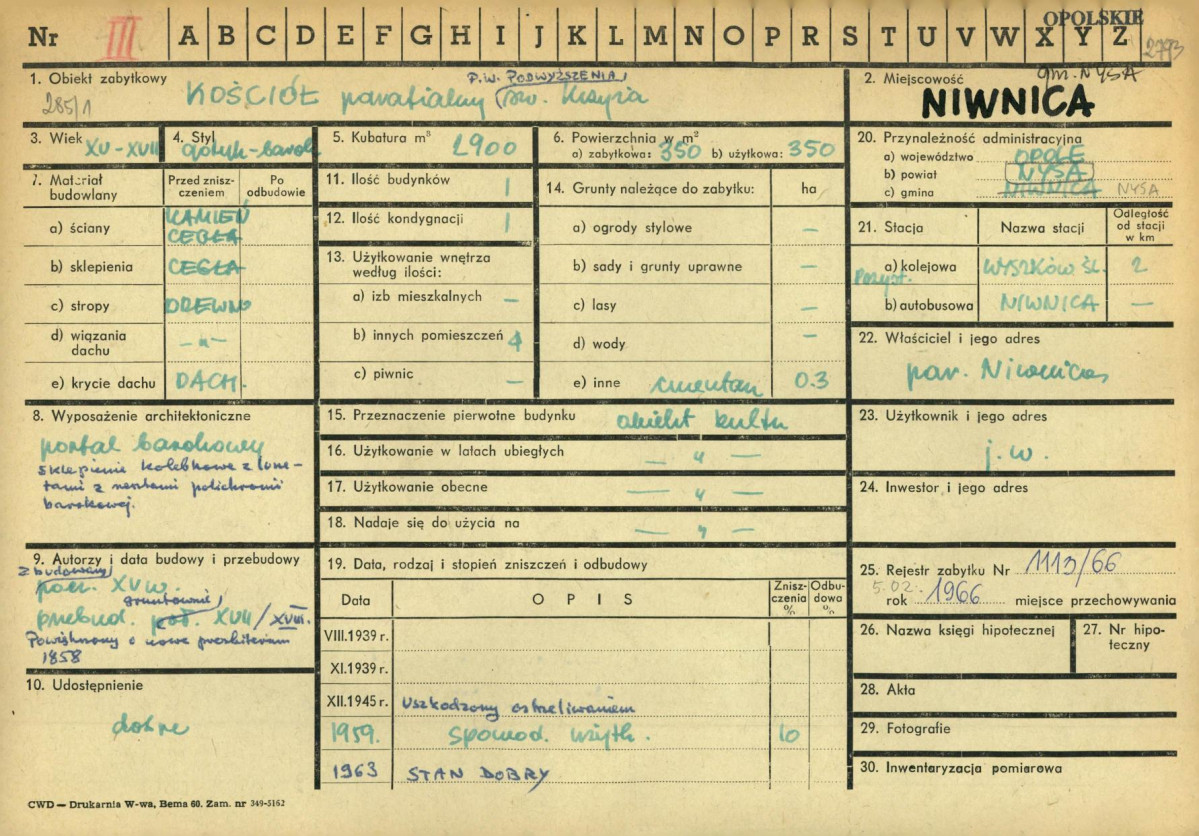 OPOLSKIE
Nr III A B C D E F G H I J K L M N O P R S T U V W X Y Z
2773
1. Obiekt zabytkowy
285/1
p.w. PODWYŻSZENIA
KOŚCIÓŁ parafialny św. Krzyża
2. Miejscowość gm. NYSA
NIWNICA
3. Wiek XV-XVII
4. Styl gotyk-barok
5. Kubatura m³ 2900
6. Powierzchnia w m²
a) zabytkowa: 350 b) użytkowa: 350
20. Przynależność administracyjna
a) województwo OPOLE
b) powiat NYSA
c) gmina NIWNICA NYSA
7. Materiał budowlany
Przed zniszczeniem
Po odbudowie
a) ściany KAMIEŃ
CEGŁA
b) sklepienia CEGŁA
c) stropy DREWNO
d) wiązania dachu -„-
e) krycie dachu DACH.
11. Ilość budynków 1
12. Ilość kondygnacji 1
13. Użytkowanie wnętrza
według ilości:
a) izb mieszkalnych —
b) innych pomieszczeń 4
c) piwnic —
14. Grunty należące do zabytku: ha
a) ogrody stylowe —
b) sady i grunty uprawne —
c) lasy —
d) wody —
e) inne cmentarz 0.3
21. Stacja Nazwa stacji Odległość od stacji w km
a) kolejowa WYSZKÓW ŚL. 2
Przyst.
b) autobusowa NIWNICA —
22. Właściciel i jego adres
par. Niwnica
8. Wyposażenie architektoniczne
portal barokowy
sklepienie kolebkowe z lune-
tami z resztami polichromii
barokowej.
15. Przeznaczenie pierwotne budynku obiekt kultu
16. Użytkowanie w latach ubiegłych — „ —
17. Użytkowanie obecne — „ —
18. Nadaje się do użycia na — „ —
23. Użytkownik i jego adres
j.w.
24. Inwestor i jego adres
9. Autorzy i data budowy i przebudowy
Zbudowany
pocz. XV w.
gruntownie
przebud. poł. XVII/XVIII.
Powiększony o nowe prezbiterium
1858
10. Udostępnienie
dobre
19. Data, rodzaj i stopień zniszczeń i odbudowy
Data OPIS Zniszczenia % Odbudowa %
VIII.1939 r.
XI.1939 r.
XII.1945 r. Uszkodzony ostrzeliwaniem
1959. spowod. użytk. 10
1963 STAN DOBRY
25. Rejestr zabytku Nr 1113/66
5.02.
rok 1966 miejsce przechowywania
26. Nazwa księgi hipotecznej
27. Nr hipo-
teczny
28. Akta
29. Fotografie
30. Inwentaryzacja pomiarowa
CWD — Drukarnia W-wa, Bema 60. Zam. nr 349-5162